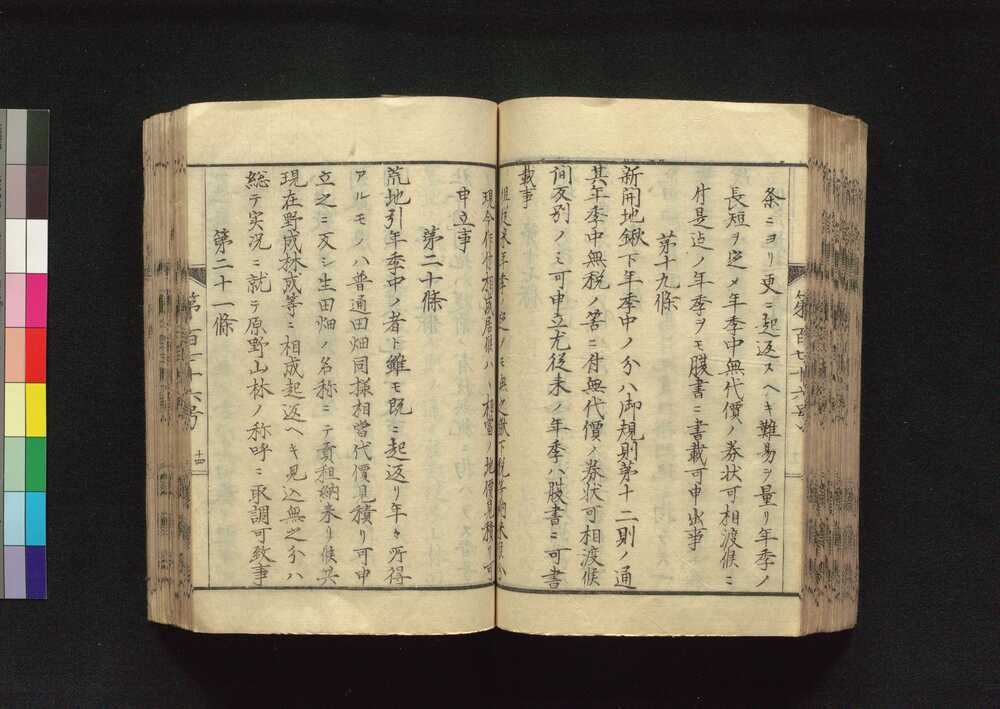 条ニヨリ更ニ起返スヘキ難易ヲ量リ年季ノ
長短ヲ定メ年季中無代價ノ券状可相渡候ニ
付是迠ノ年季ヲモ腹書ニ書載可申出事
第十九條
新開地鍬下年季中ノ分ハ御規則第十二則ノ通
其年季中無税ノ筈ニ付無代價ノ券状可相渡候
間反別ノミ可申立尤従来ノ年季ハ腹書ニ可書
載事
現今作付相成居候ハヽ相當ノ地價見積リ可
申立事
第二十條
荒地引年季中ノ者ト雖モ既ニ起返リ年々所得
アルモノハ普通田畑同様相當代價見積リ可申
立之ニ反シ生田畑ノ名称ニテ貢租納来リ候共
現在野成林成等ニ相成起返ヘキ見込無之分ハ
総テ実況ニ就テ原野山林ノ称呼ニ取調可致事
第二十一條
第百七十六号
十四